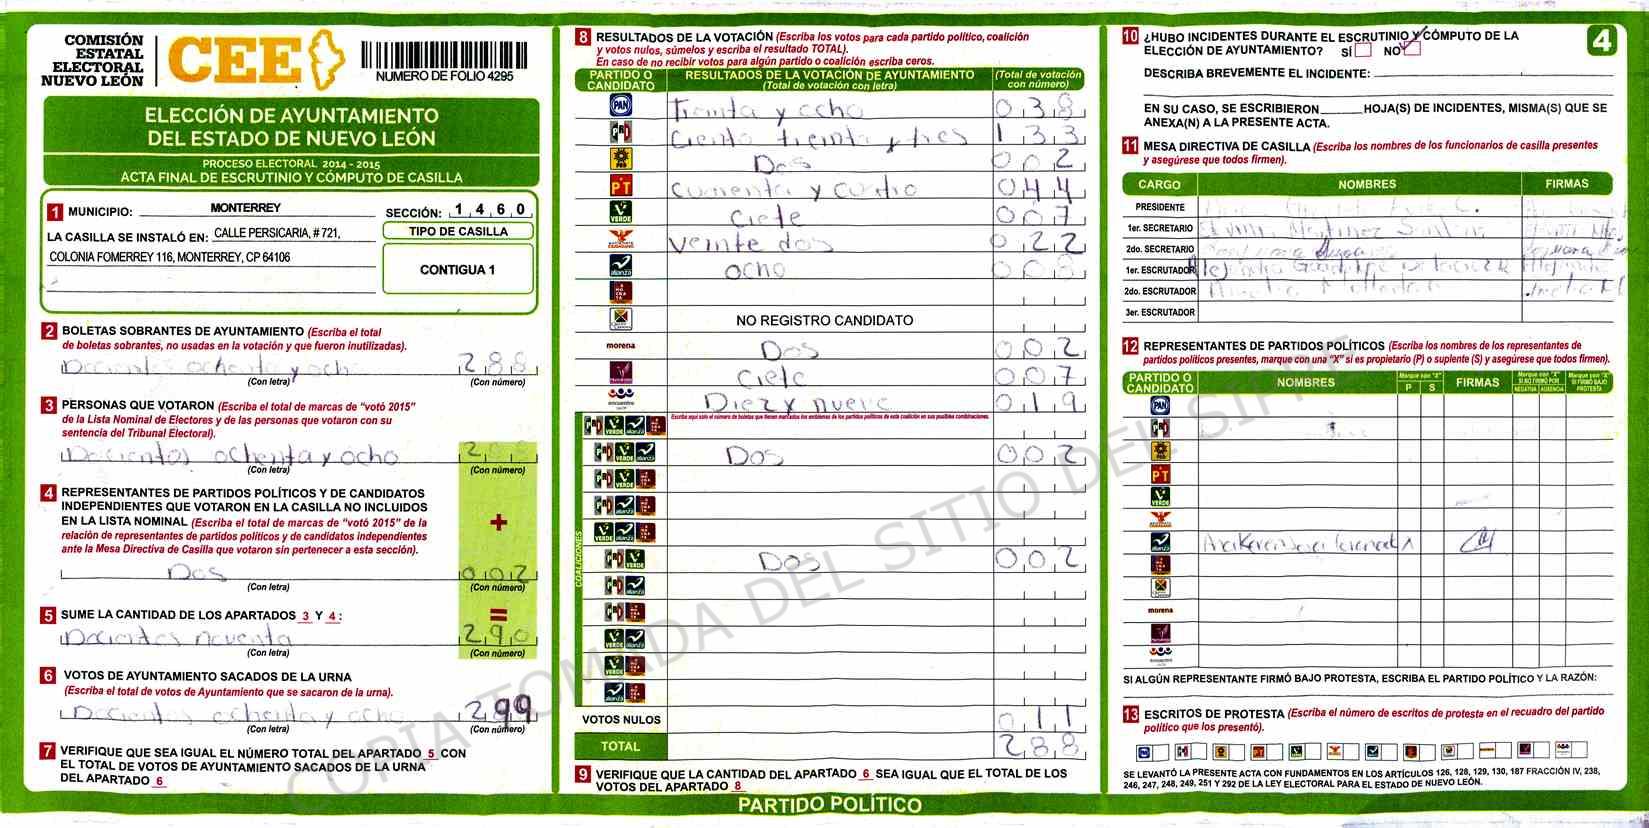 COMISIÓN
ESTATAL
ELECTORAL
NUEVO LEÓN
CEE
NUMERO DE FOLIO 4295
ELECCIÓN DE AYUNTAMIENTO
DEL ESTADO DE NUEVO LEÓN
PROCESO ELECTORAL 2014 - 2015
ACTA FINAL DE ESCRUTINIO Y CÓMPUTO DE CASILLA
1 MUNICIPIO: MONTERREY SECCIÓN: 1 4 6 0
LA CASILLA SE INSTALÓ EN: CALLE PERSICARIA, # 721,
COLONIA FOMERREY 116, MONTERREY, CP 64106
TIPO DE CASILLA
CONTIGUA 1
2 BOLETAS SOBRANTES DE AYUNTAMIENTO (Escriba el total
de boletas sobrantes, no usadas en la votación y que fueron inutilizadas).
Docientos ochenta y ocho 288
(Con letra) (Con número)
3 PERSONAS QUE VOTARON (Escriba el total de marcas de "votó 2015"
de la Lista Nominal de Electores y de las personas que votaron con su
sentencia del Tribunal Electoral).
Docientos ochenta y ocho 288
(Con letra) (Con número)
4 REPRESENTANTES DE PARTIDOS POLÍTICOS Y DE CANDIDATOS
INDEPENDIENTES QUE VOTARON EN LA CASILLA NO INCLUIDOS
EN LA LISTA NOMINAL (Escriba el total de marcas de "votó 2015" de la
relación de representantes de partidos políticos y de candidatos independientes
ante la Mesa Directiva de Casilla que votaron sin pertenecer a esta sección).
+
Dos 002
(Con letra) (Con número)
5 SUME LA CANTIDAD DE LOS APARTADOS 3 Y 4 :
=
Docientos noventa 290
(Con letra) (Con número)
6 VOTOS DE AYUNTAMIENTO SACADOS DE LA URNA
(Escriba el total de votos de Ayuntamiento que se sacaron de la urna).
Docientos ochenta y ocho 299
(Con letra) (Con número)
7 VERIFIQUE QUE SEA IGUAL EL NÚMERO TOTAL DEL APARTADO 5 CON
EL TOTAL DE VOTOS DE AYUNTAMIENTO SACADOS DE LA URNA
DEL APARTADO 6
8 RESULTADOS DE LA VOTACIÓN (Escriba los votos para cada partido político, coalición
y votos nulos, súmelos y escriba el resultado TOTAL).
En caso de no recibir votos para algún partido o coalición escriba ceros.
PARTIDO O CANDIDATO RESULTADOS DE LA VOTACIÓN DE AYUNTAMIENTO (Total de votación con letra) (Total de votación con número)
PAN Treinta y ocho 038
PRI Ciento treinta y tres 133
PRD Dos 002
PT Cuarenta y cuatro 044
VERDE Ciete 007
Veinte dos 022
alianza ocho 008
NO REGISTRO CANDIDATO
morena Dos 002
Ciete 007
encuentro Diez y nueve 019
Escriba aquí solo el número de boletas que tienen marcados los emblemas de los partidos políticos de esta coalición en sus posibles combinaciones.
COALICIONES
PRI VERDE alianza Dos 002
PRI VERDE Dos 002
VOTOS NULOS 011
TOTAL 288
9 VERIFIQUE QUE LA CANTIDAD DEL APARTADO 6 SEA IGUAL QUE EL TOTAL DE LOS
VOTOS DEL APARTADO 8
PARTIDO POLÍTICO
10 ¿HUBO INCIDENTES DURANTE EL ESCRUTINIO Y CÓMPUTO DE LA
ELECCIÓN DE AYUNTAMIENTO? SÍ NO
4
DESCRIBA BREVEMENTE EL INCIDENTE:
EN SU CASO, SE ESCRIBIERON HOJA(S) DE INCIDENTES, MISMA(S) QUE SE
ANEXA(N) A LA PRESENTE ACTA.
11 MESA DIRECTIVA DE CASILLA (Escriba los nombres de los funcionarios de casilla presentes
y asegúrese que todos firmen).
CARGO NOMBRES FIRMAS
PRESIDENTE
1er. SECRETARIO Martinez
2do. SECRETARIO
1er. ESCRUTADOR Alejandra Guadalupe
2do. ESCRUTADOR
3er. ESCRUTADOR
12 REPRESENTANTES DE PARTIDOS POLÍTICOS (Escriba los nombres de los representantes de
partidos políticos presentes, marque con una "X" si es propietario (P) o suplente (S) y asegúrese que todos firmen).
PARTIDO O CANDIDATO NOMBRES Marque con "X" P S FIRMAS Marque con "X" SI NO FIRMÓ POR NEGATIVA AUSENCIA Marque con "X" SI FIRMÓ BAJO PROTESTA
PAN
PRI
PRD
PT
VERDE
alianza
morena
encuentro
SI ALGÚN REPRESENTANTE FIRMÓ BAJO PROTESTA, ESCRIBA EL PARTIDO POLÍTICO Y LA RAZÓN:
13 ESCRITOS DE PROTESTA (Escriba el número de escritos de protesta en el recuadro del partido
político que los presentó).
SE LEVANTÓ LA PRESENTE ACTA CON FUNDAMENTOS EN LOS ARTÍCULOS 126, 128, 129, 130, 187 FRACCIÓN IV, 238,
246, 247, 248, 249, 251 Y 292 DE LA LEY ELECTORAL PARA EL ESTADO DE NUEVO LEÓN.
COPIA TOMADA DEL SITIO DEL SIPRE